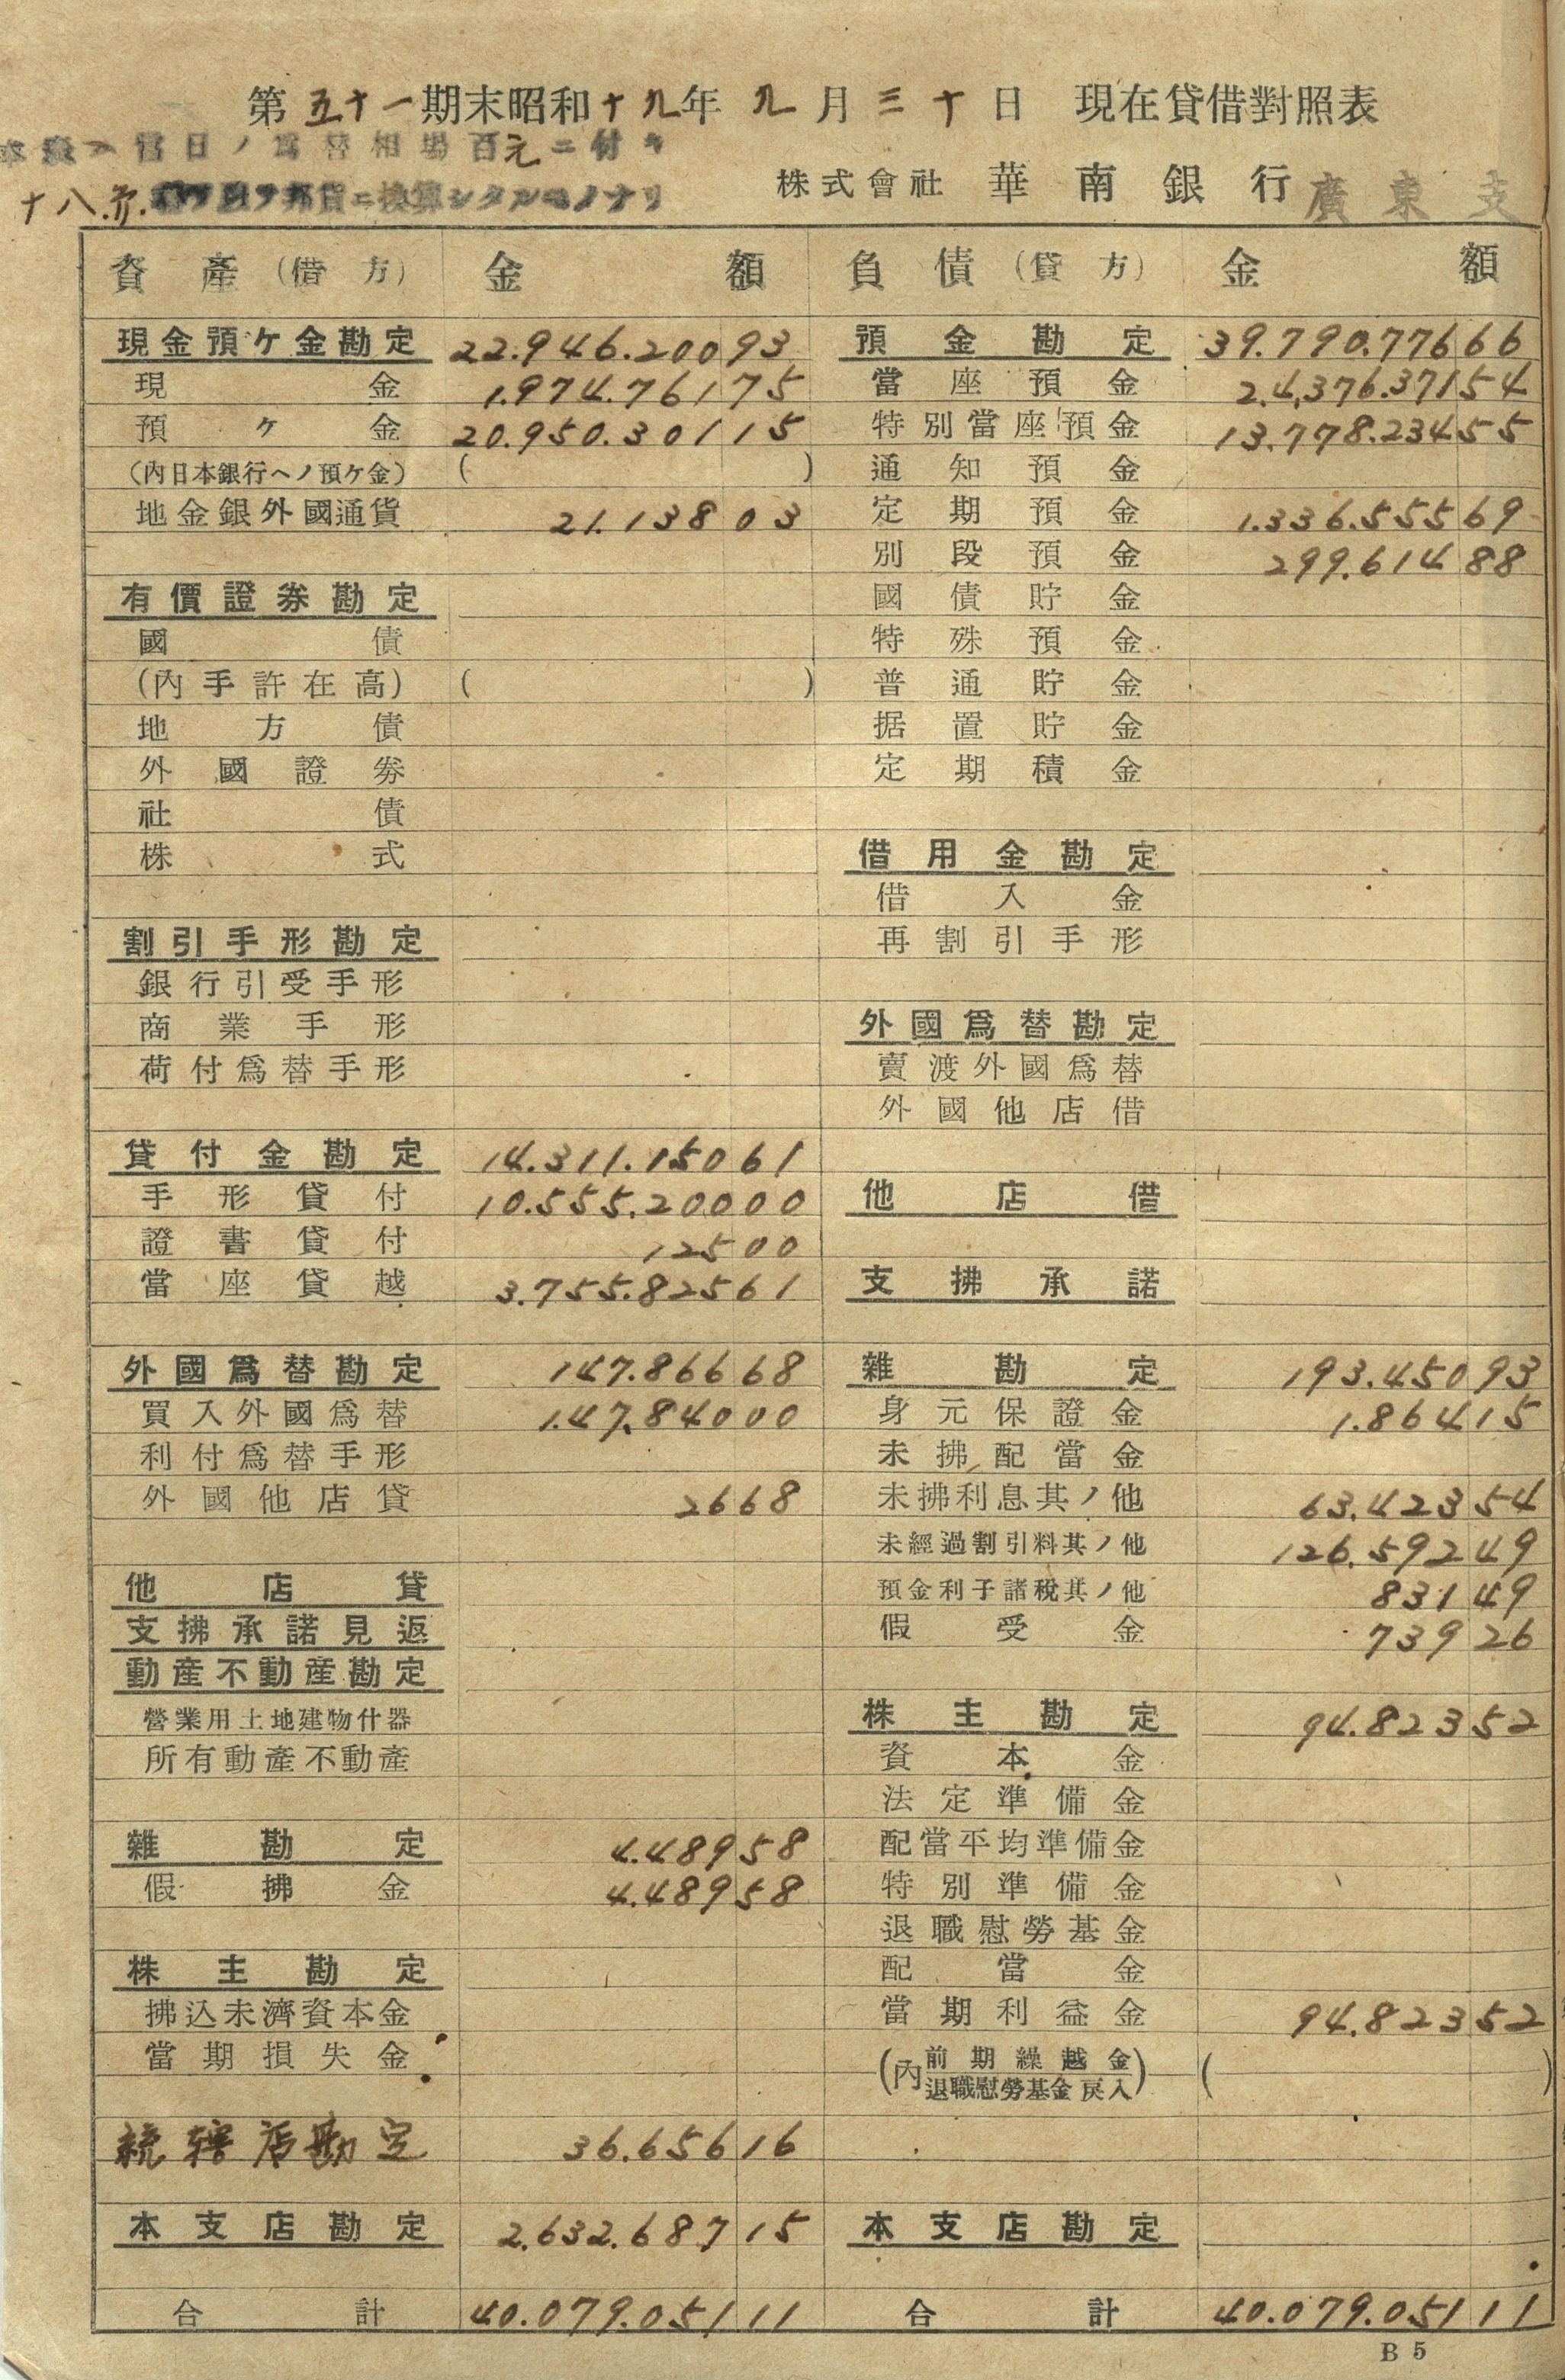 第五十一期末昭和十九年九月三十日 現在貸借對照表
當日ノ爲替相場百元ニ付キ
十八 邦貨ニ換算シタルモノナリ
株式會社 華南銀行廣東支
資產(借方) 金額 負債(貸方) 金額
現金預ケ金勘定 22.946.200 93 預金勘定 39.790.776 66
現金 1.974.761 75 當座預金 24.376.371 54
預ケ金 20.950.301 15 特別當座預金 13.778.234 55
(內日本銀行ヘノ預ケ金) ( ) 通知預金
地金銀外國通貨 21.138 03 定期預金 1.336.555 69
別段預金 299.614 88
有價證券勘定 國債貯金
國債 特殊預金
(內手許在高) ( ) 普通貯金
地方債 据置貯金
外國證券 定期積金
社債
株式 借用金勘定
借入金
割引手形勘定 再割引手形
銀行引受手形
商業手形 外國爲替勘定
荷付爲替手形 賣渡外國爲替
外國他店借
貸付金勘定 14.311.150 61
手形貸付 10.555.200 00 他店借
證書貸付 125 00
當座貸越 3.755.825 61 支拂承諾
外國爲替勘定 147.866 68 雜勘定 193.450 93
買入外國爲替 147.840 00 身元保證金 1.864 15
利付爲替手形 未拂配當金
外國他店貸 26 68 未拂利息其ノ他 63.423 54
未經過割引料其ノ他 126.592 49
他店貸 預金利子諸稅其ノ他 831 49
支拂承諾見返 假受金 739 26
動產不動產勘定
營業用土地建物什器 株主勘定 94.823 52
所有動產不動產 資本金
法定準備金
雜勘定 4.489 58 配當平均準備金
假拂金 4.489 58 特別準備金
退職慰勞基金
株主勘定 配當金
拂込未濟資本金 當期利益金 94.823 52
當期損失金 (內前期繰越金
退職慰勞基金戾入) ( )
統轄店勘定 36.656 16
本支店勘定 2.632.687 15 本支店勘定
合計 40.079.051 11 合計 40.079.051 11
B 5